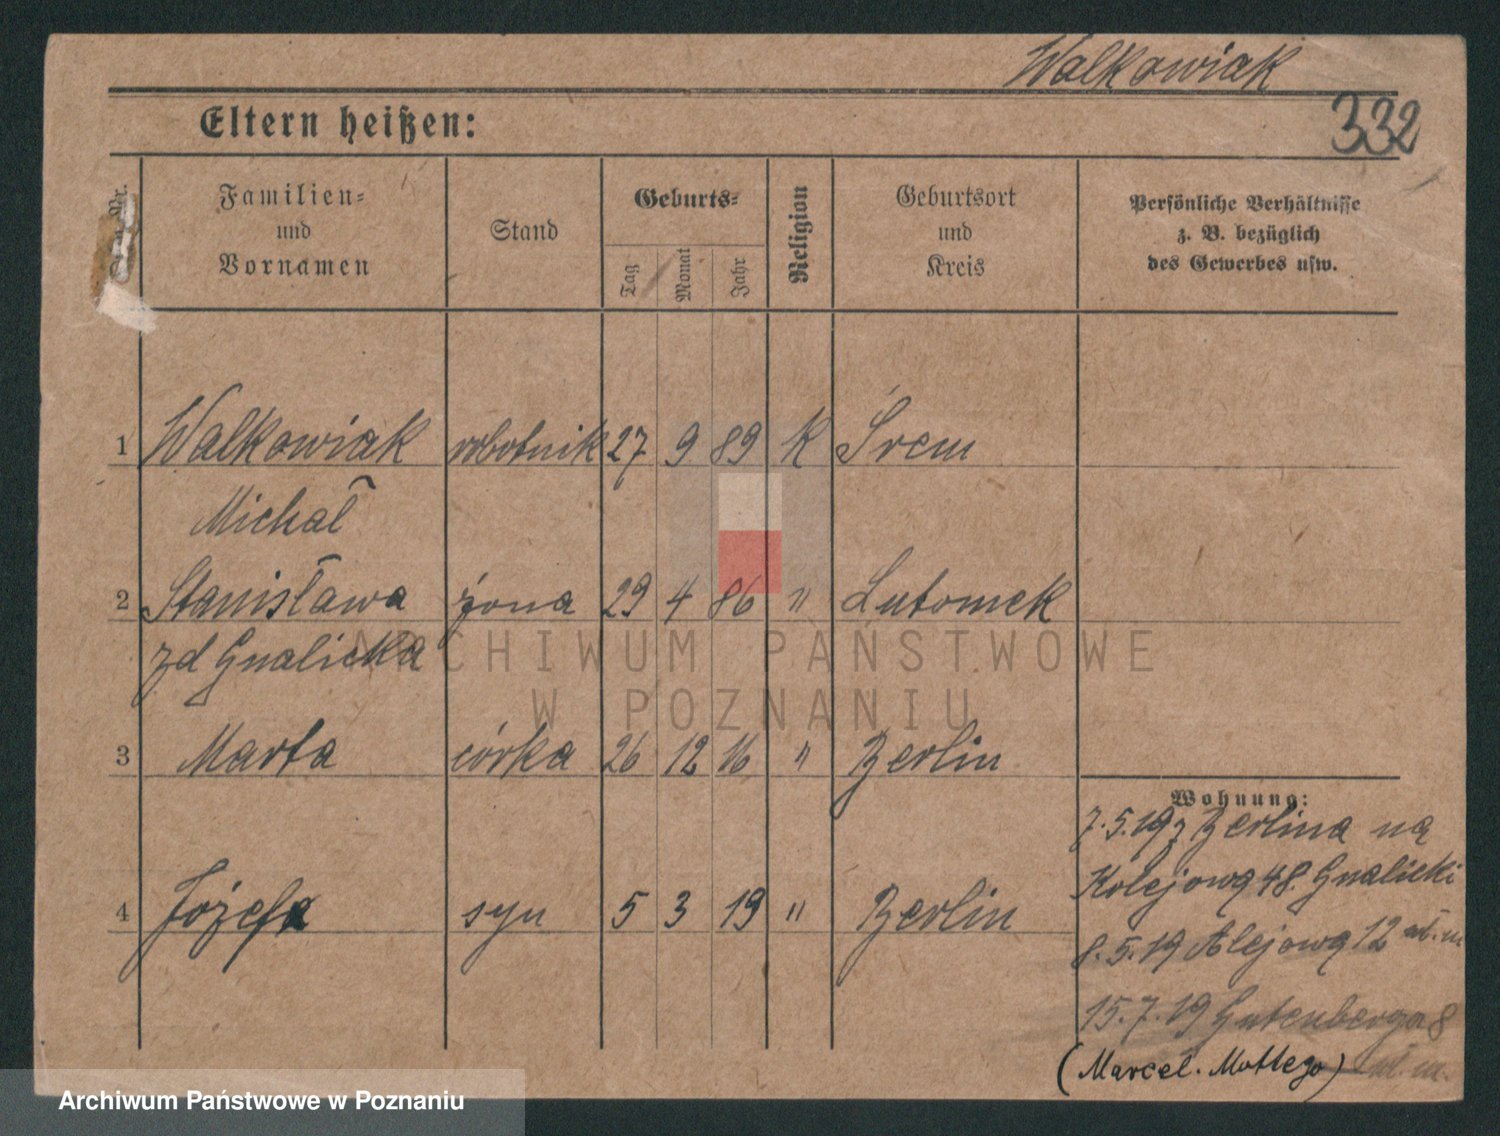 Walkowiak
332
Eltern heißen:
Nr.
Familien-
und
Vornamen
Stand
Geburts-
Tag
Monat
Jahr
Religion
Geburtsort
und
Kreis
Persönliche Verhältnisse
z. B. bezüglich
des Gewerbes usw.
1 Walkowiak robotnik 27 9 89 K Śrem
Michał
2 Stanisława żona 29 4 86 " Lutomek
zd Gnalicka
3 Marta córka 26 12 16 " Berlin
4 Józef syn 5 3 19 " Berlin
Wohnung:
7.5.19 z Berlina na
Kolejową 48. Gnalicki
8.5.19 Alejową 12
15.7.19 Gutenberga 8
(Marcel. Mottego)
ARCHIWUM PAŃSTWOWE
W POZNANIU
Archiwum Państwowe w Poznaniu